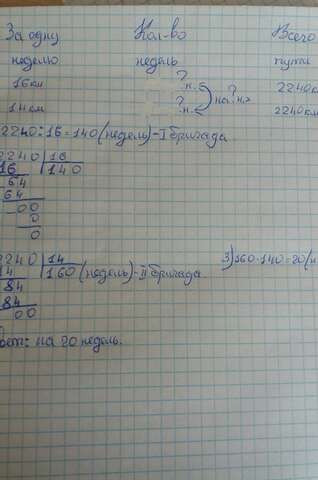 За одну Кол-во Всего
неделю недель пути
16км ? н. 2240к
на ? н.>
14км ? н. 2240км
2240:16=140(недель)-I бригада
2240 16
16 140
64
64
00
0
0
2240 14
14 160(недель)-II бригада 3)160-140=20(н
84
84
00
вет: на 20 недель.